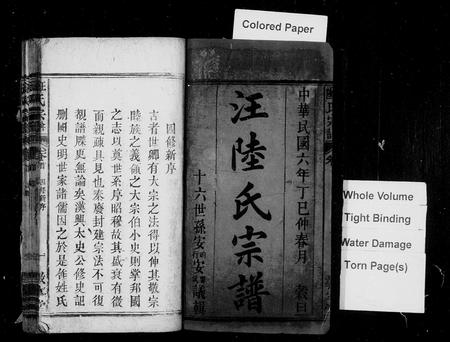 Colored Paper
中華民國六年丁巳仲春月 穀旦
汪陸氏宗譜
十六世孫安
Whole Volume
Tight Binding
Water Damage
Torn Page(s)
因修新序
古者世卿有大宗之法得以伸其敬宗
睦族之義領之大宗伯小史則掌邦國
之志以奠世系序昭穆故其盛衰有徵
而親疎具見也秦廢封建宗法不可復
覩譜牒更無論矣漢興太史公修史詔
刪國史明世家諸儒因之於是姓氏